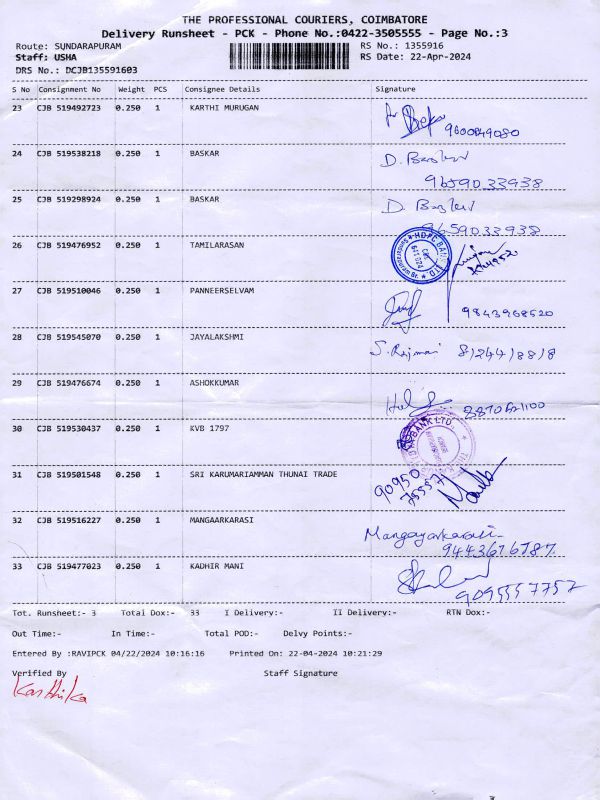 THE PROFESSIONAL COURIERS, COIMBATORE
Delivery Runsheet - PCK - Phone No.:0422-3505555 - Page No.:3
Route: SUNDARAPURAM RS No.: 1355916
Staff: USHA RS Date: 22-Apr-2024
DRS No.: DCJB135591603
S No Consignment No Weight PCS Consignee Details Signature
23 CJB 519492723 0.250 1 KARTHI MURUGAN
9600849080
24 CJB 519538218 0.250 1 BASKAR D. Baskar
9659033938
25 CJB 519298924 0.250 1 BASKAR D. Baskar
9659033938
26 CJB 519476952 0.250 1 TAMILARASAN
HDFC BANK LTD.
27 CJB 519510046 0.250 1 PANNEERSELVAM
9843968520
28 CJB 519545070 0.250 1 JAYALAKSHMI 8124418818
29 CJB 519476674 0.250 1 ASHOKKUMAR
30 CJB 519530437 0.250 1 KVB 1797
BANK LTD.
31 CJB 519501548 0.250 1 SRI KARUMARIAMMAN THUNAI TRADE
90950
75557
32 CJB 519516227 0.250 1 MANGAARKARASI
Mangayarkarasi
9443676787
33 CJB 519477023 0.250 1 KADHIR MANI
9095557757
Tot. Runsheet:- 3 Total Dox:- 33 I Delivery:- II Delivery:- RTN Dox:-
Out Time:- In Time:- Total POD:- Delvy Points:-
Entered By :RAVIPCK 04/22/2024 10:16:16 Printed On: 22-04-2024 10:21:29
Verified By Staff Signature
Karthika